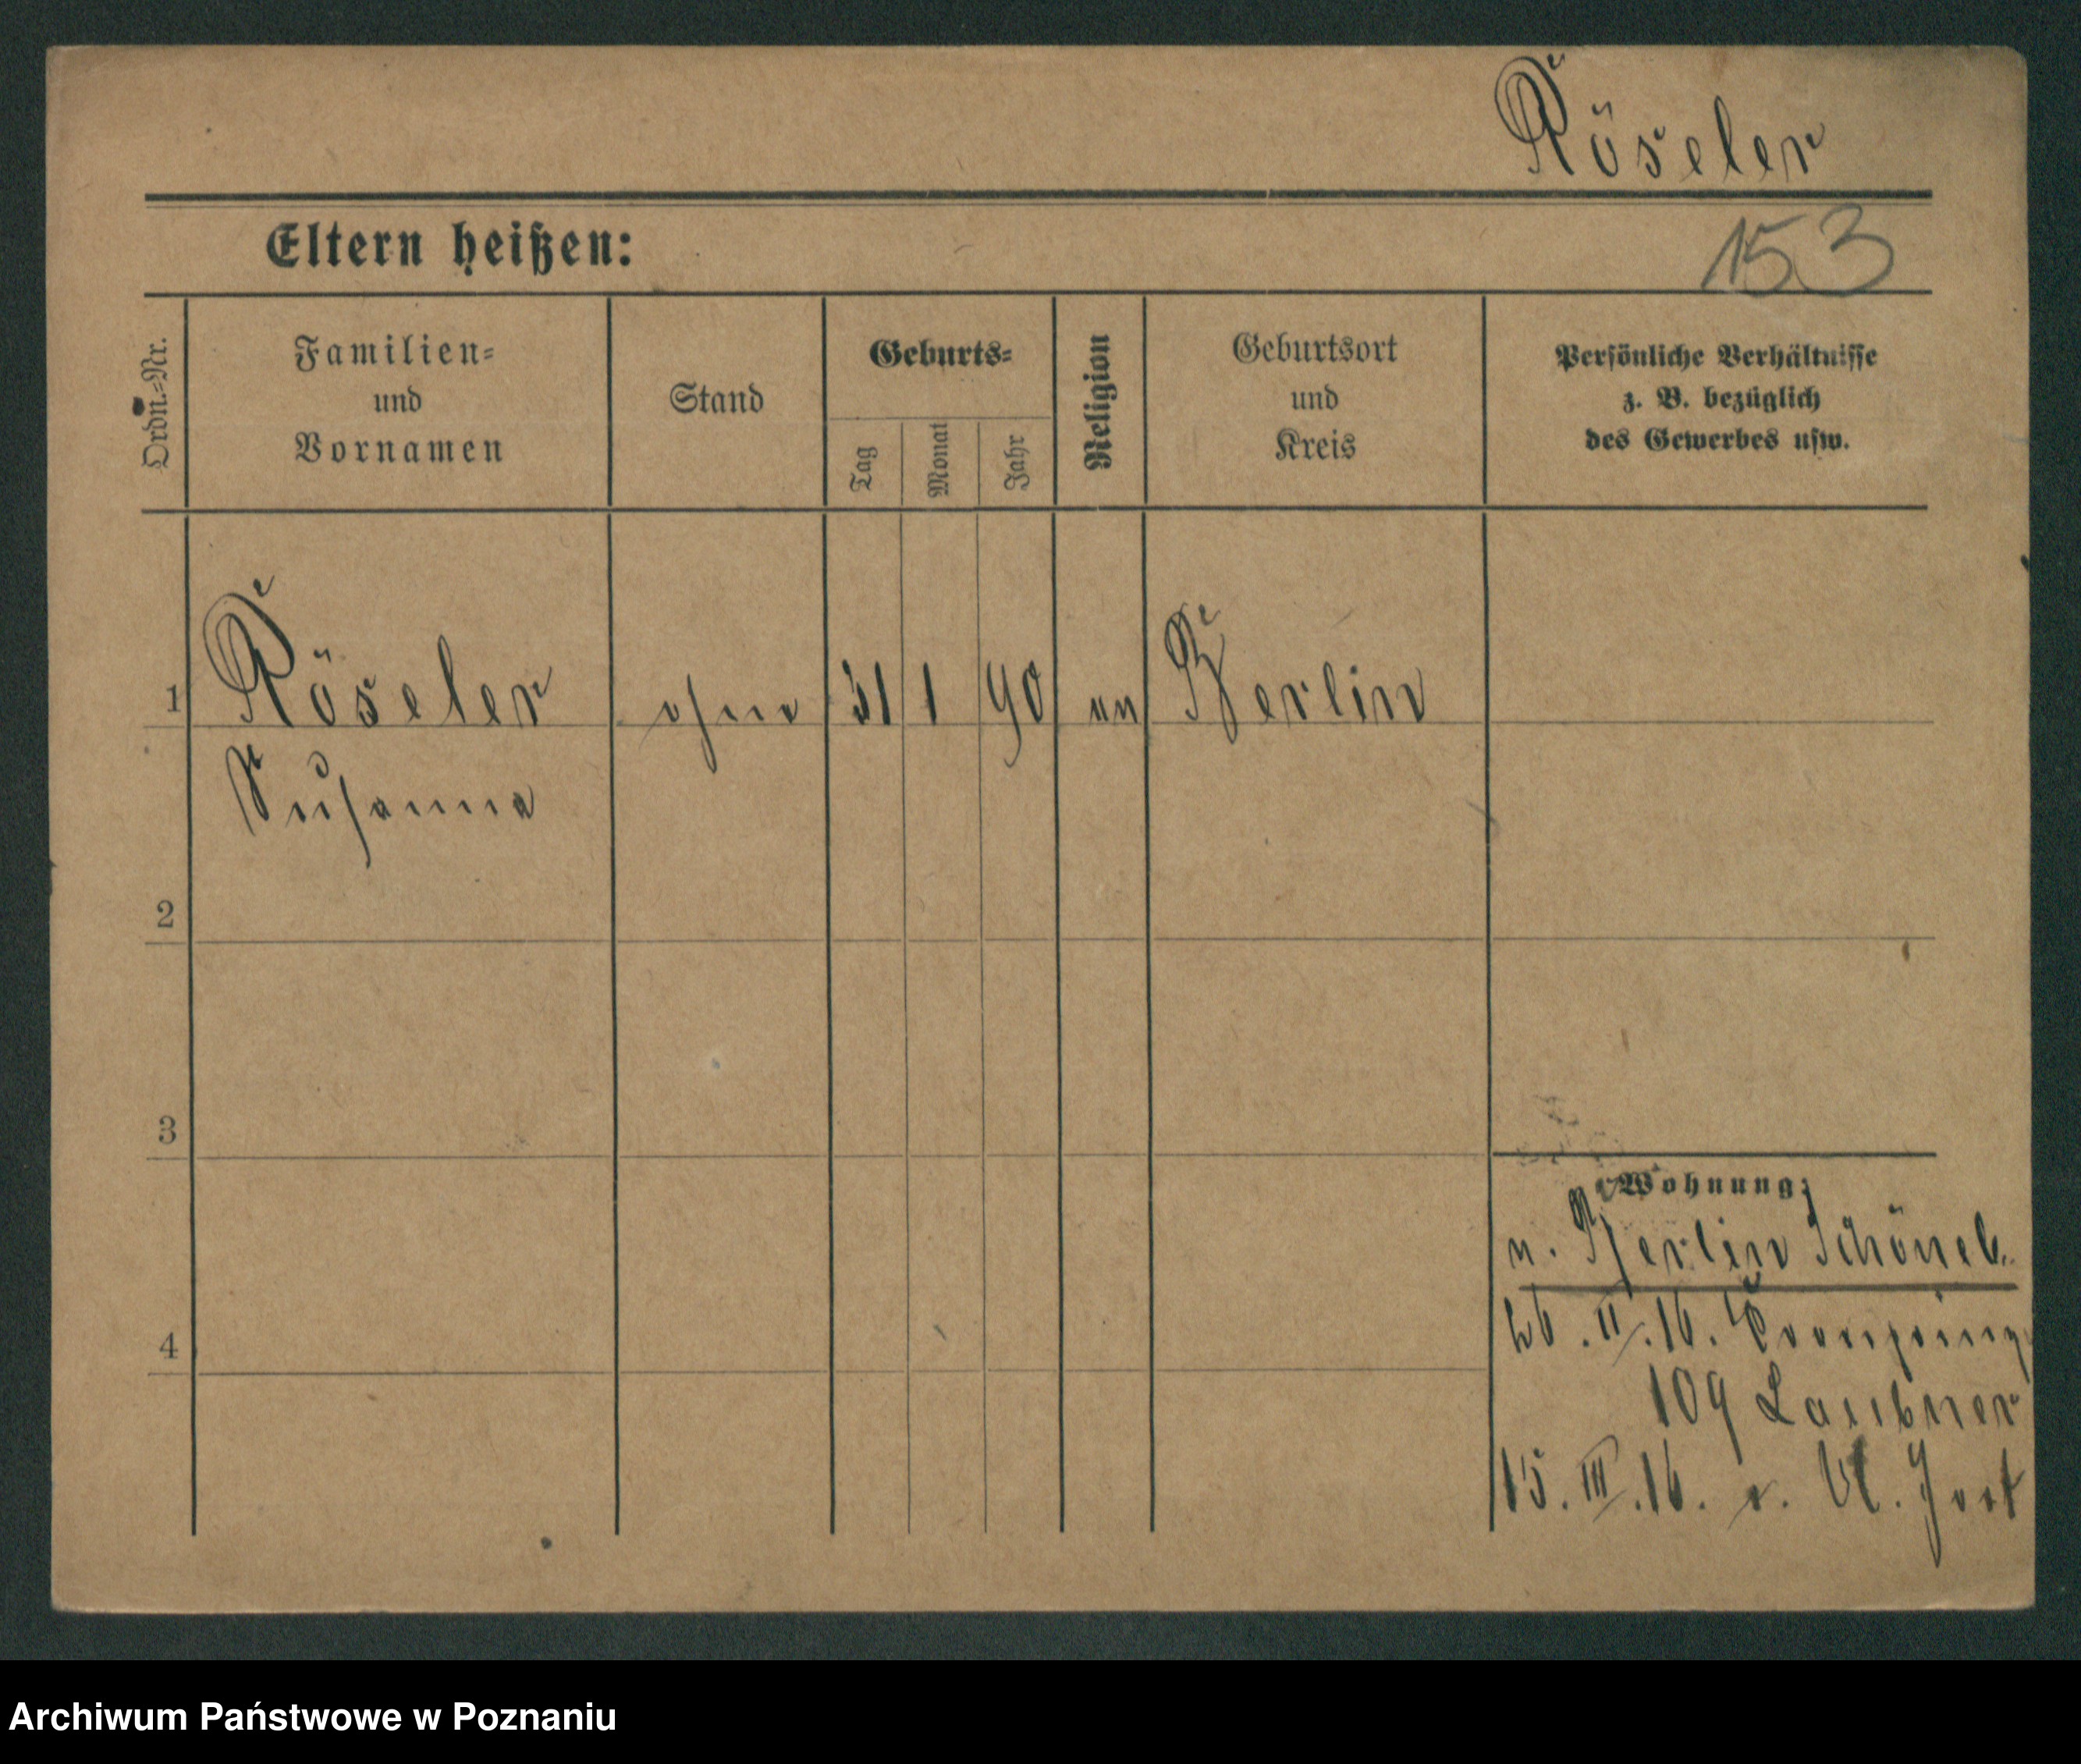 Röseler
Eltern heißen:
153
Ordn.-Nr.
Familien-
und
Vornamen
Stand
Geburts-
Tag
Monat
Jahr
Religion
Geburtsort
und
Kreis
Persönliche Verhältnisse
z. B. bezüglich
des Gewerbes usw.
1 Röseler ohne 31 1 90 ev Berlin
Susanna
2
3
4
Wohnung:
v. Berlin Schöneb.
26. II. 16. Kronprinz
109 Laubner
15. III. 16. n.
Archiwum Państwowe w Poznaniu